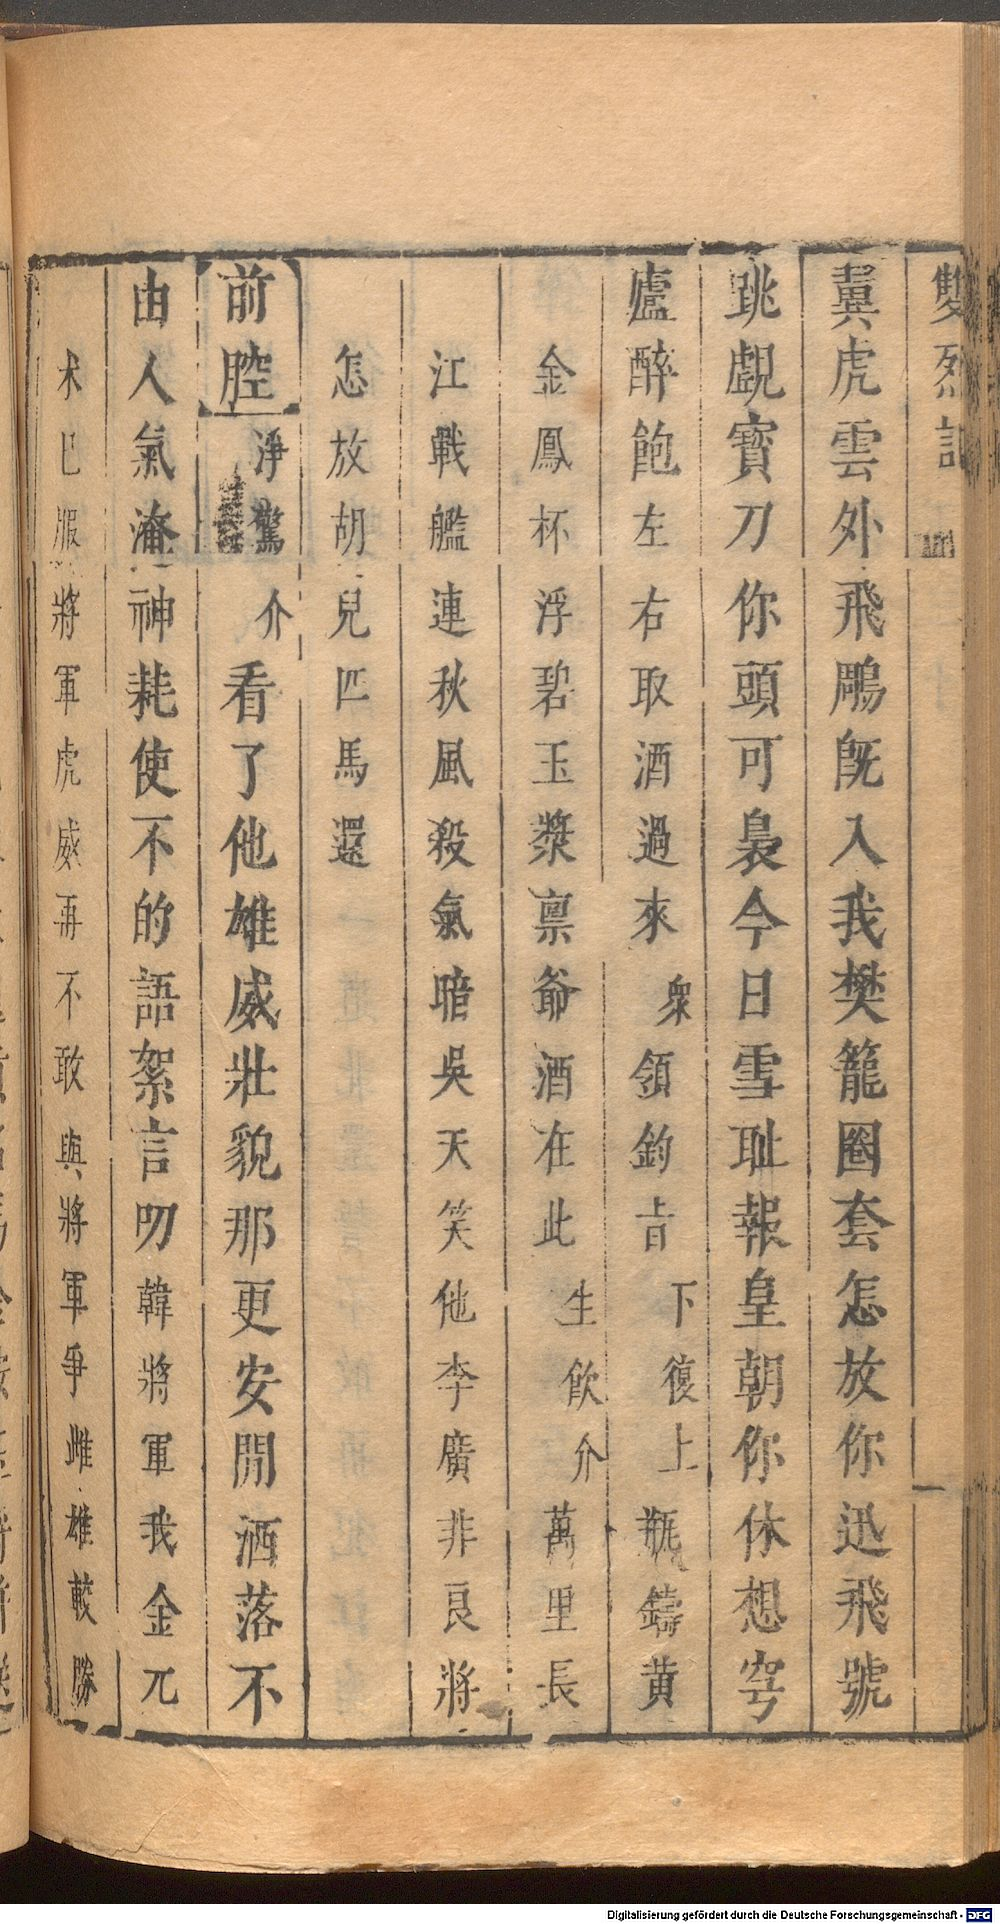 雙烈記
冀虎雲外飛鵰旣入我樊籠圈套怎放你迅飛號
跳覷寶刀你頭可裊今日雪耻報皇朝你休想穹
廬醉飽左右取酒過來衆領鈞旨下復上瓶鑄黄
金鳳杯浮碧玉漿禀爺酒在此生飲介萬里長
江戰艦連秋風殺氣暗吳天笑他李廣非良將
怎放胡兒匹馬還
前腔淨驚介看了他雄威壯貌那更安閒洒落不
由人氣淹神耗使不的語絮言叨韓將軍我金兀
术已服將軍虎威再不敢與將軍爭雌雄較勝
Digitalisierung gefördert durch die Deutsche Forschungsgemeinschaft - DFG